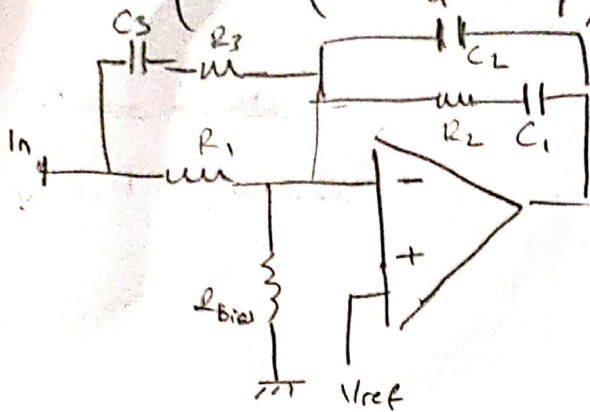 C3
R3
C2
R2
C1
In
R1
-
+
RBias
Vref